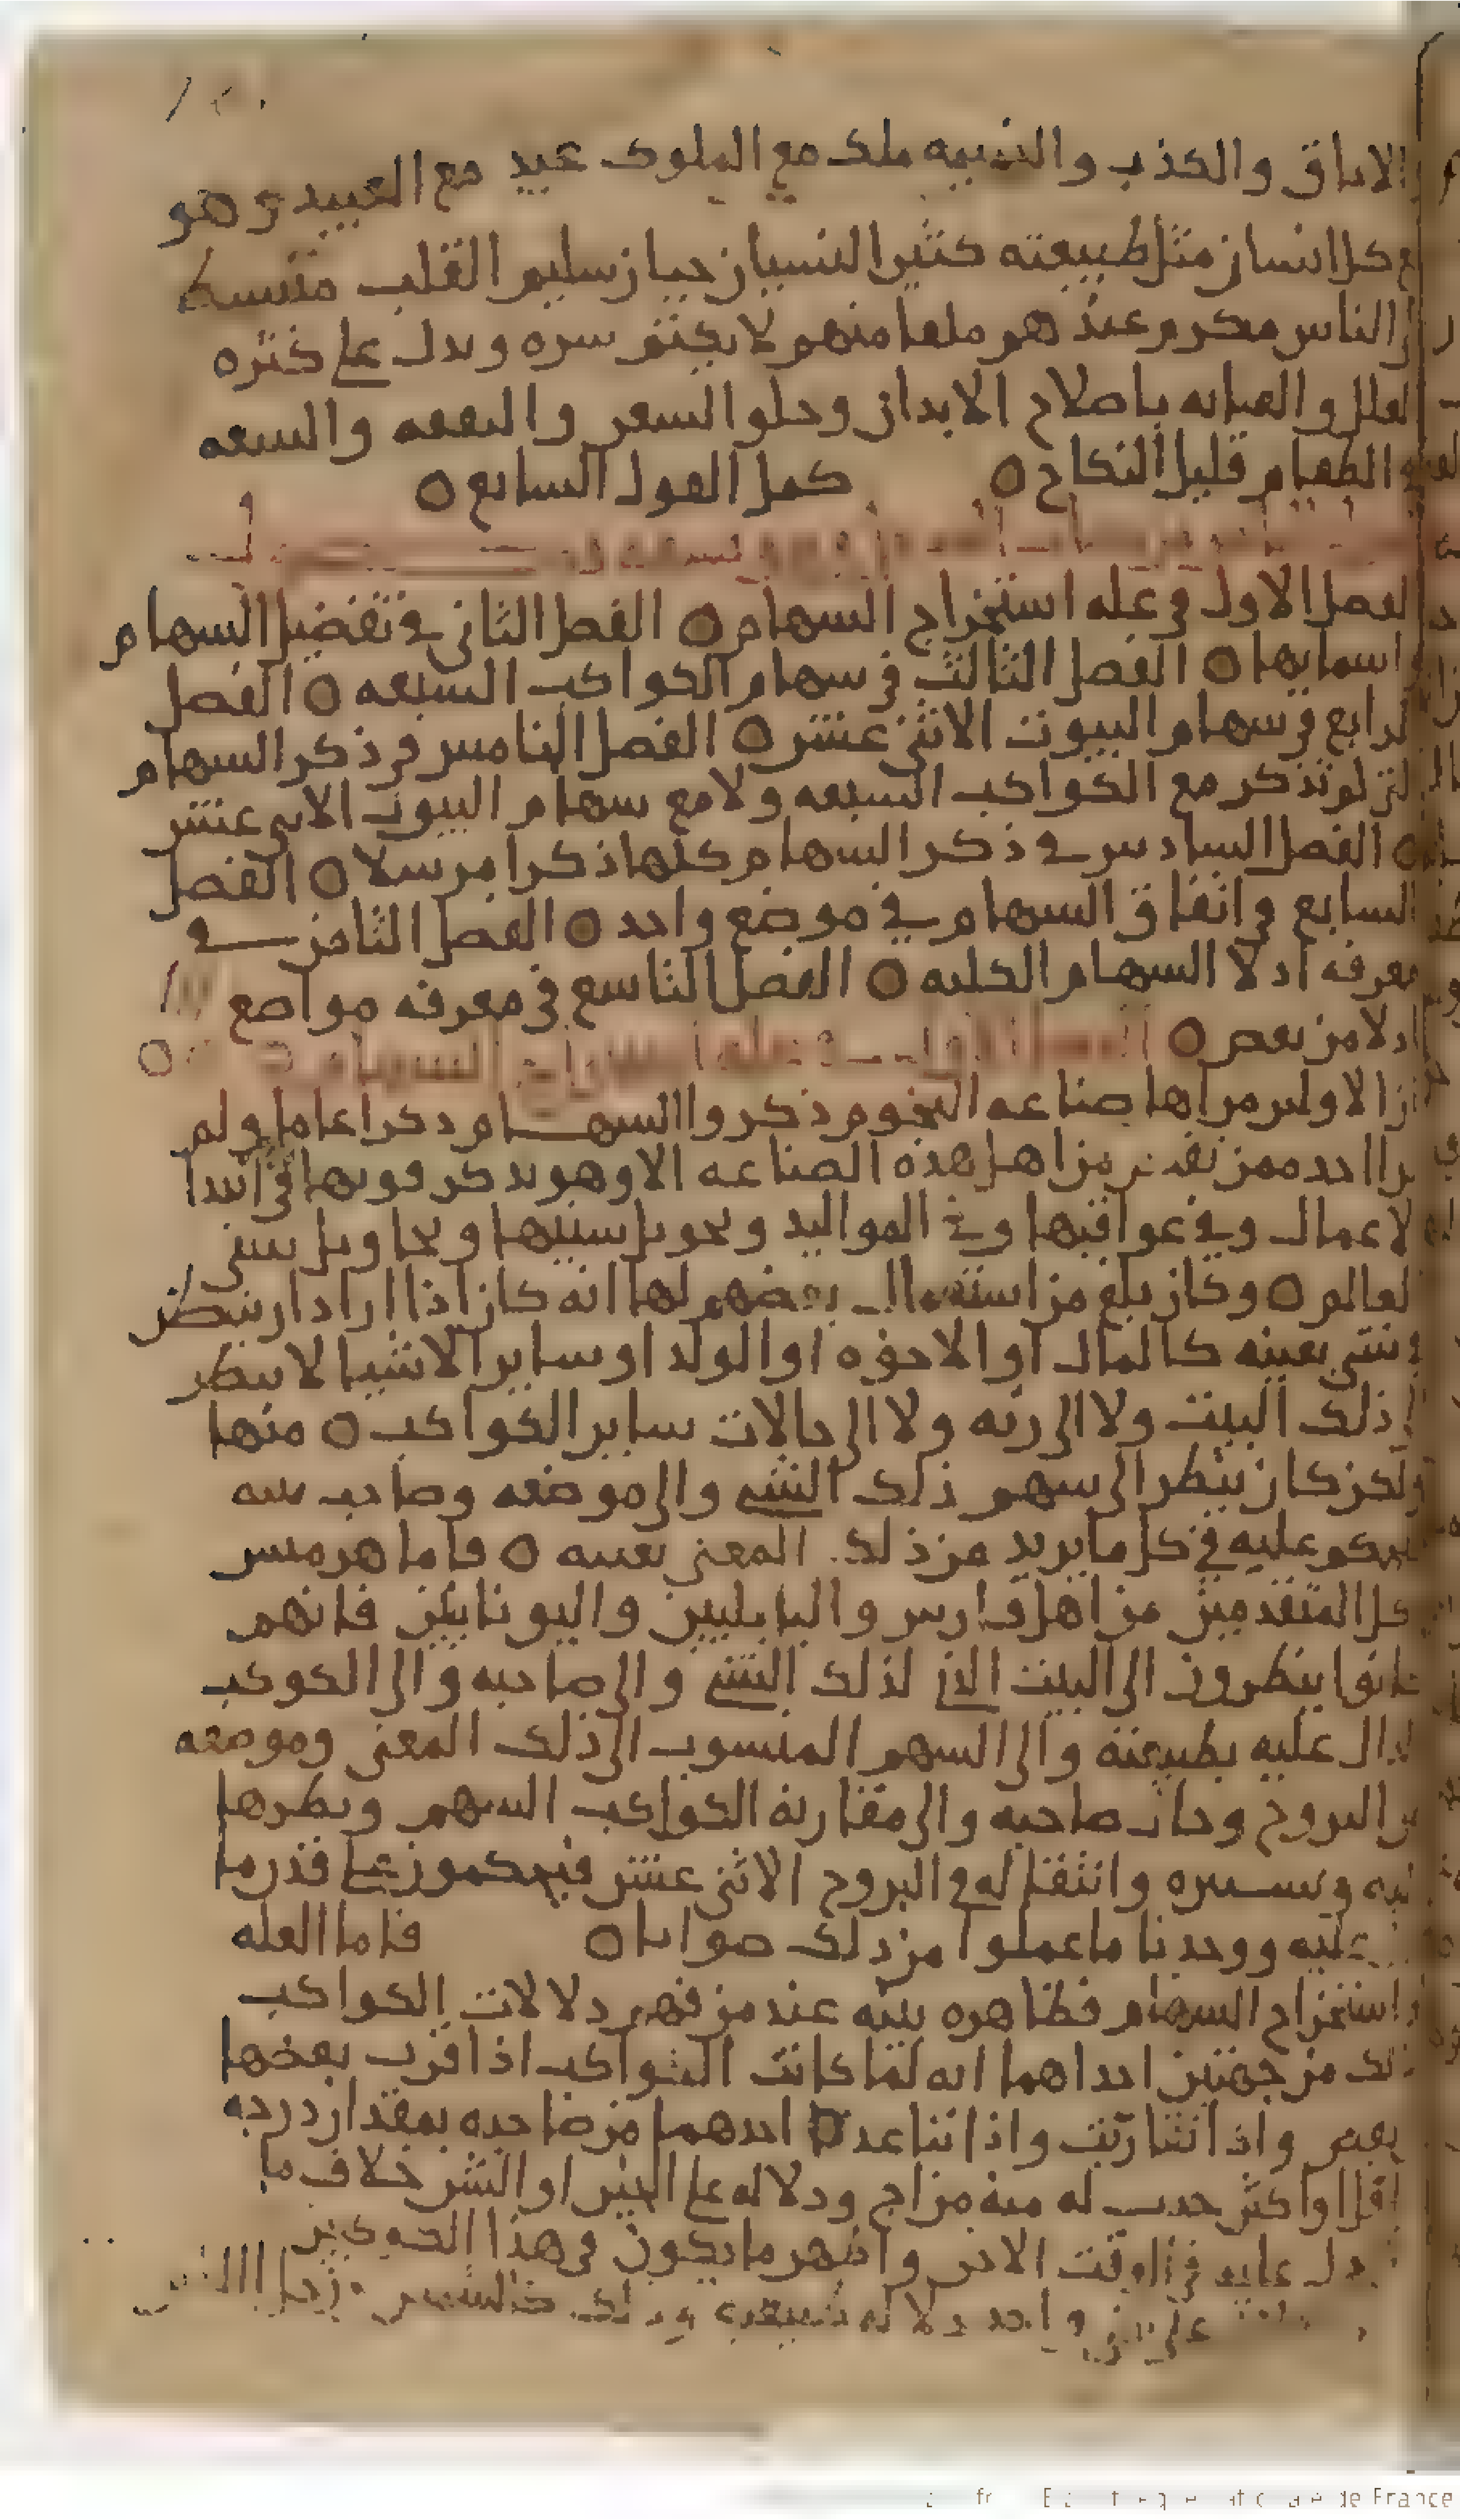 والاباق والكذب والنميمه ملك مع الملوك عبيد مع العبيد وهو
مع كل انسان مثل طبيعته كثير النسيان جبان سليم القلب منبسط
الى الناس مكرم عندهم ملقا منهم لا يكتم سره ويدل على كثره
العلل والعنايه باصلاح الابدان وحلو السعر والنفقه والسعه
الطعام قليل النكاح ٥ كمل القول السابع ٥
الفصل الاول في عله استخراج السهام ٥ الفصل الثاني في تفضيل السهام
واسمايها ٥ الفصل الثالث في سهام الكواكب السبعه ٥ الفصل
الرابع في سهام البيوت الاثني عشر ٥ الفصل الخامس في ذكر السهام
التي لم تذكر مع الكواكب السبعه ولا مع سهام البيوت الاثني عشر
٥ الفصل السادس في ذكر السهام كلها ذكرا مرسلا ٥ الفصل
السابع في اتفاق السهام في موضع واحد ٥ الفصل الثامن في
معرفه ادلا السهام الكليه ٥ الفصل التاسع في معرفه مواضع
ادلا من بعض ٥ الفصل الاول في عله استخراج السهام ٥
ان الاولين من اهل صناعه النجوم ذكروا السهام ذكرا عاما ولم
نرا احد ممن تقدم من اهل هذه الصناعه الا وهو يذكر قوتها في ابتدا
الاعمال وفي عواقبها وفي المواليد وتحويل سنيها وتحاويل سني
العالم ٥ وكان بلغ من استعمال بعضهم لها انه كان اذا اراد ان ينظر
في شي بعينه كالمال او الاخوه او الولد او ساير الاشيا لا ينظر
الى ذلك البيت ولا الى ربه ولا الى حالات ساير الكواكب ٥ منها
ولكن كان ينظر الى سهم ذلك الشي والى موضعه وصاحب بيته
فيحكم عليه في كل ما يريد من ذلك المعنى بعينه ٥ فاما هرمس
وكل المتقدمين من اهل فارس والبابليين واليونانيين فانهم
كانوا ينظرون الى البيت الذي لذلك الشي والى صاحبه والى الكوكب
الدال عليه بطبيعته والى السهم المنسوب الى ذلك المعنى وموضعه
من البروج وحال صاحبه والى مقارنه الكواكب السهم ونظرها
اليه وتسييره وانتقاله في البروج الاثني عشر فيحكمون على قدر ما
عليه ووجدنا ما عملوا من ذلك صوابا ٥ فاما العله
في استخراج السهام فظاهره بينه عند من فهم دلالات الكواكب
وذلك من جهتين احداهما انه لما كانت الكواكب اذا قرب بعضها
من بعض واذا تقاربت واذا تباعد احدهما من صاحبه بمقدار درجه
او اقل او اكثر حدث له منه مزاج ودلاله على الخير او الشر خلاف ما
يدل عليه في الوقت الاخر واظهر ما يكون في هذا الكوكبين
واحد دلاله طبيعيه وذلك كالشمس وزحل